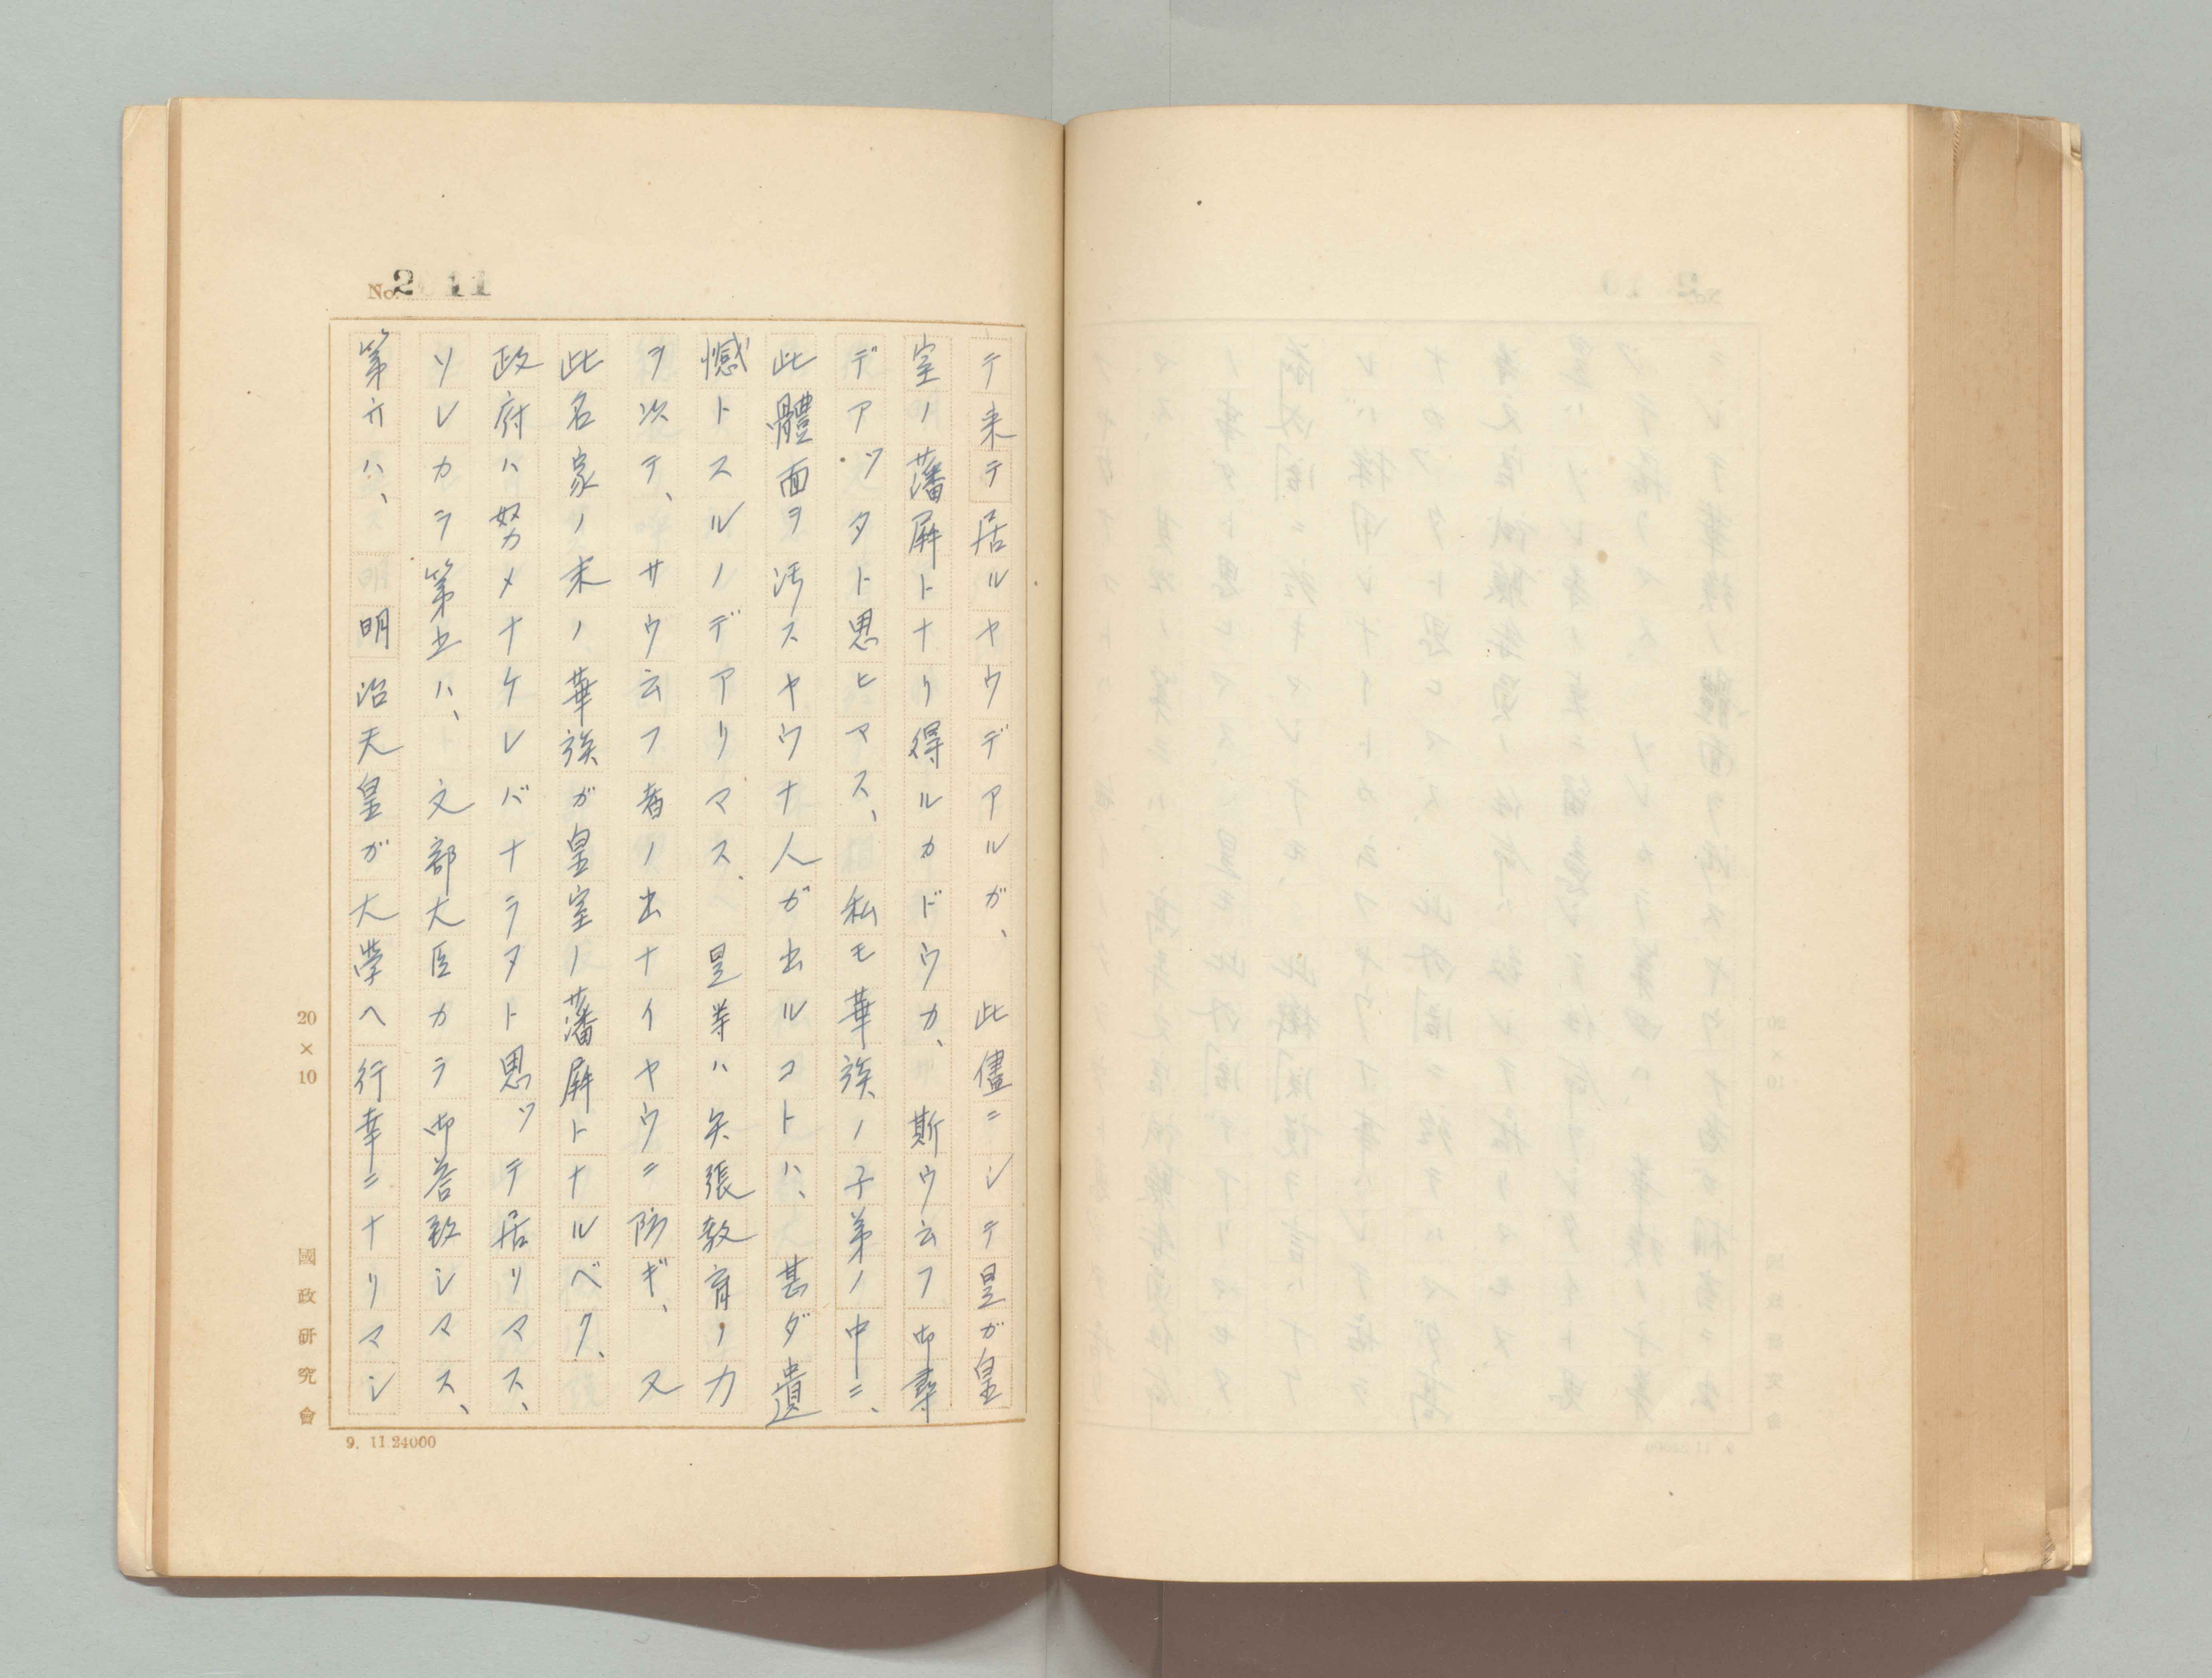 No. 2011
テ来テ居ルヤウデアルガ、此儘ニシテ是ガ皇
室ノ藩屏トナリ得ルカドウカ、斯ウ云フ御尋
デアツタト思ヒマス、私モ華族ノ子弟ノ中ニ、
此體面ヲ汚スヤウナ人ガ出ルコトハ、甚ダ遺
憾トスルノデアリマス、是等ハ矢張教育ノ力
ヲ以テ、サウ云フ者ノ出ナイヤウニ防ギ、又
此名家ノ末ノ華族ガ皇室ノ藩屏トナルベク、
政府ハ努メナケレバナラヌト思ツテ居リマス、
ソレカラ第五ハ、文部大臣カラ御答致シマス、
第六ハ、明治天皇ガ大学ヘ行幸ニナリマシ
20×10
國政研究會
9. 11.24000